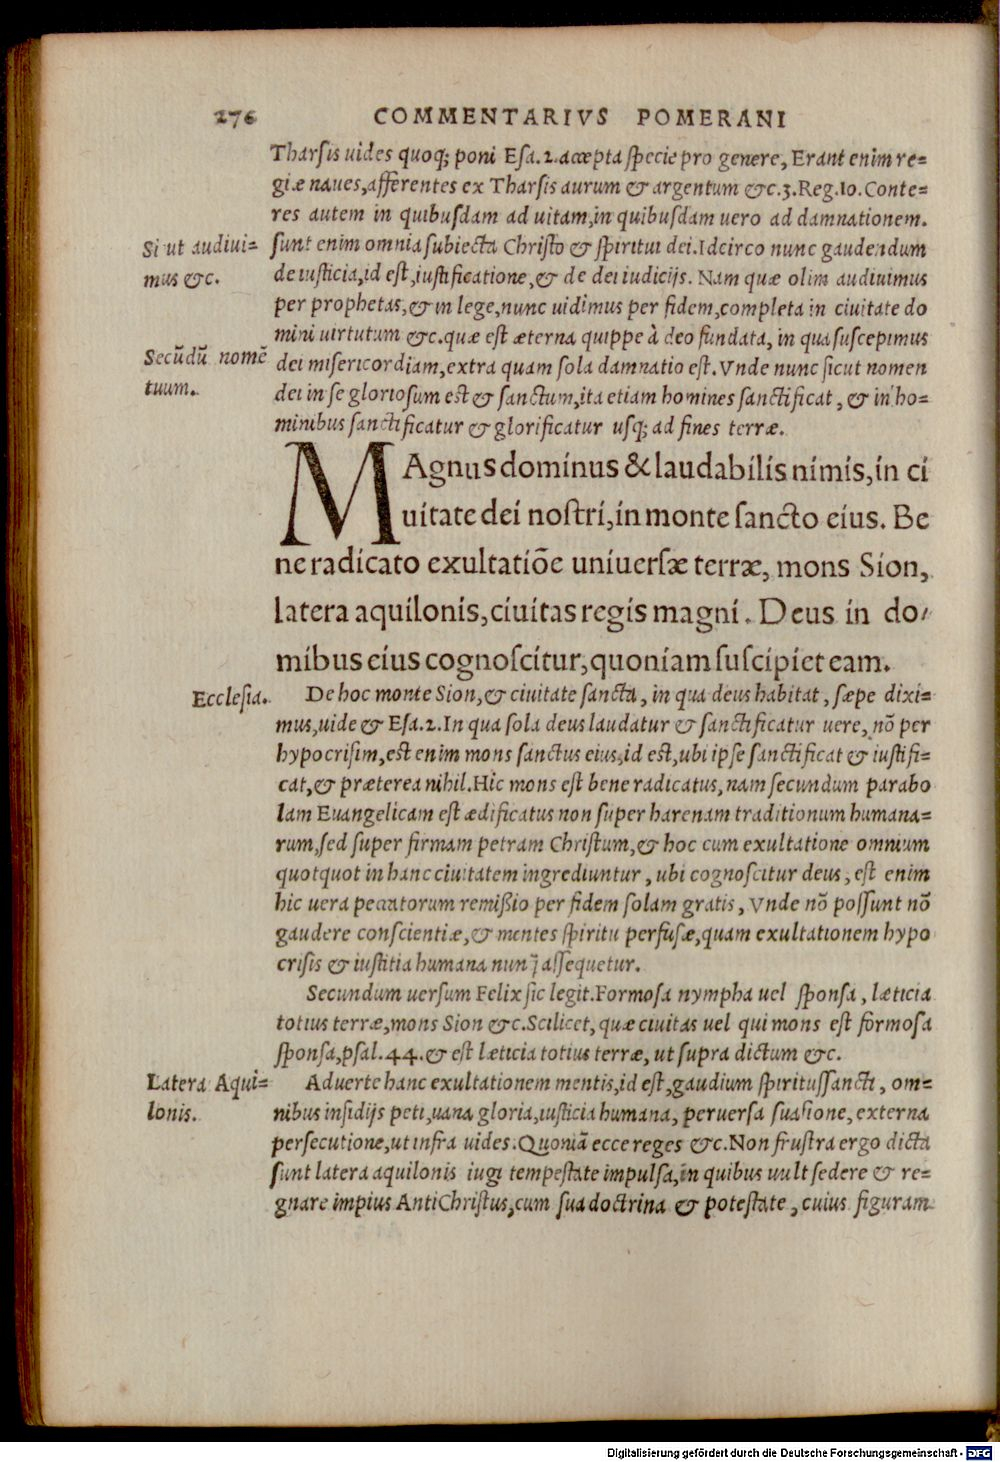 276 COMMENTARIVS POMERANI
Tharsis uides quoq; poni Esa.2.accepta specie pro genere, Erant enim re=
giæ naues,afferentes ex Tharsis aurum & argentum &c.3.Reg.10.Conte=
res autem in quibusdam ad uitam,in quibusdam uero ad damnationem.
Si ut audiui=
mus &c.
sunt enim omnia subiecta Christo & spiritui dei.Idcirco nunc gaudendum
de iusticia,id est,iustificatione,& de dei iudicijs. Nam quæ olim audiuimus
per prophetas,& in lege,nunc uidimus per fidem,completa in ciuitate do
mini uirtutum &c.quæ est æterna quippe à deo fundata, in qua suscepimus
Secūdū nomē
tuum.
dei misericordiam,extra quam sola damnatio est.Vnde nunc sicut nomen
dei in se gloriosum est & sanctum,ita etiam homines sanctificat, & in ho=
minibus sanctificatur & glorificatur usq; ad fines terræ.
MAgnus dominus & laudabilis nimis,in ci
uitate dei nostri,in monte sancto eius. Be
ne radicato exultatiōe uniuersæ terræ, mons Sion,
latera aquilonis,ciuitas regis magni. Deus in do/
mibus eius cognoscitur,quoniam suscipiet eam.
Ecclesia.
De hoc monte Sion,& ciuitate sancta, in qua deus habitat, sæpe dixi=
mus,uide & Esa.2.In qua sola deus laudatur & sanctificatur uere, nō per
hypocrisim,est enim mons sanctus eius,id est,ubi ipse sanctificat & iustifi=
cat,& præterea nihil.Hic mons est bene radicatus,nam secundum parabo
lam Euangelicam est ædificatus non super harenam traditionum humana=
rum,sed super firmam petram Christum,& hoc cum exultatione omnium
quotquot in hanc ciuitatem ingrediuntur, ubi cognoscitur deus, est enim
hic uera peccatorum remißio per fidem solam gratis, Vnde nō possunt nō
gaudere conscientiæ,& mentes spiritu perfusæ,quam exultationem hypo
crisis & iustitia humana nunq̃ assequetur.
Secundum uersum Felix sic legit.Formosa nympha uel sponsa, læticia
totius terræ,mons Sion &c.Scilicet,quæ ciuitas uel qui mons est formosa
sponsa,psal.44.& est læticia totius terræ, ut supra dictum &c.
Latera Aqui=
lonis.
Aduerte hanc exultationem mentis,id est,gaudium spiritussancti, om=
nibus insidijs peti,uana gloria,iusticia humana, peruersa suasione, externa
persecutione,ut infra uides.Quoniā ecce reges &c.Non frustra ergo dicta
sunt latera aquilonis iugi tempestate impulsa,in quibus uult sedere & re=
gnare impius AntiChristus,cum sua doctrina & potestate, cuius figuram
Digitalisierung gefördert durch die Deutsche Forschungsgemeinschaft - DFG